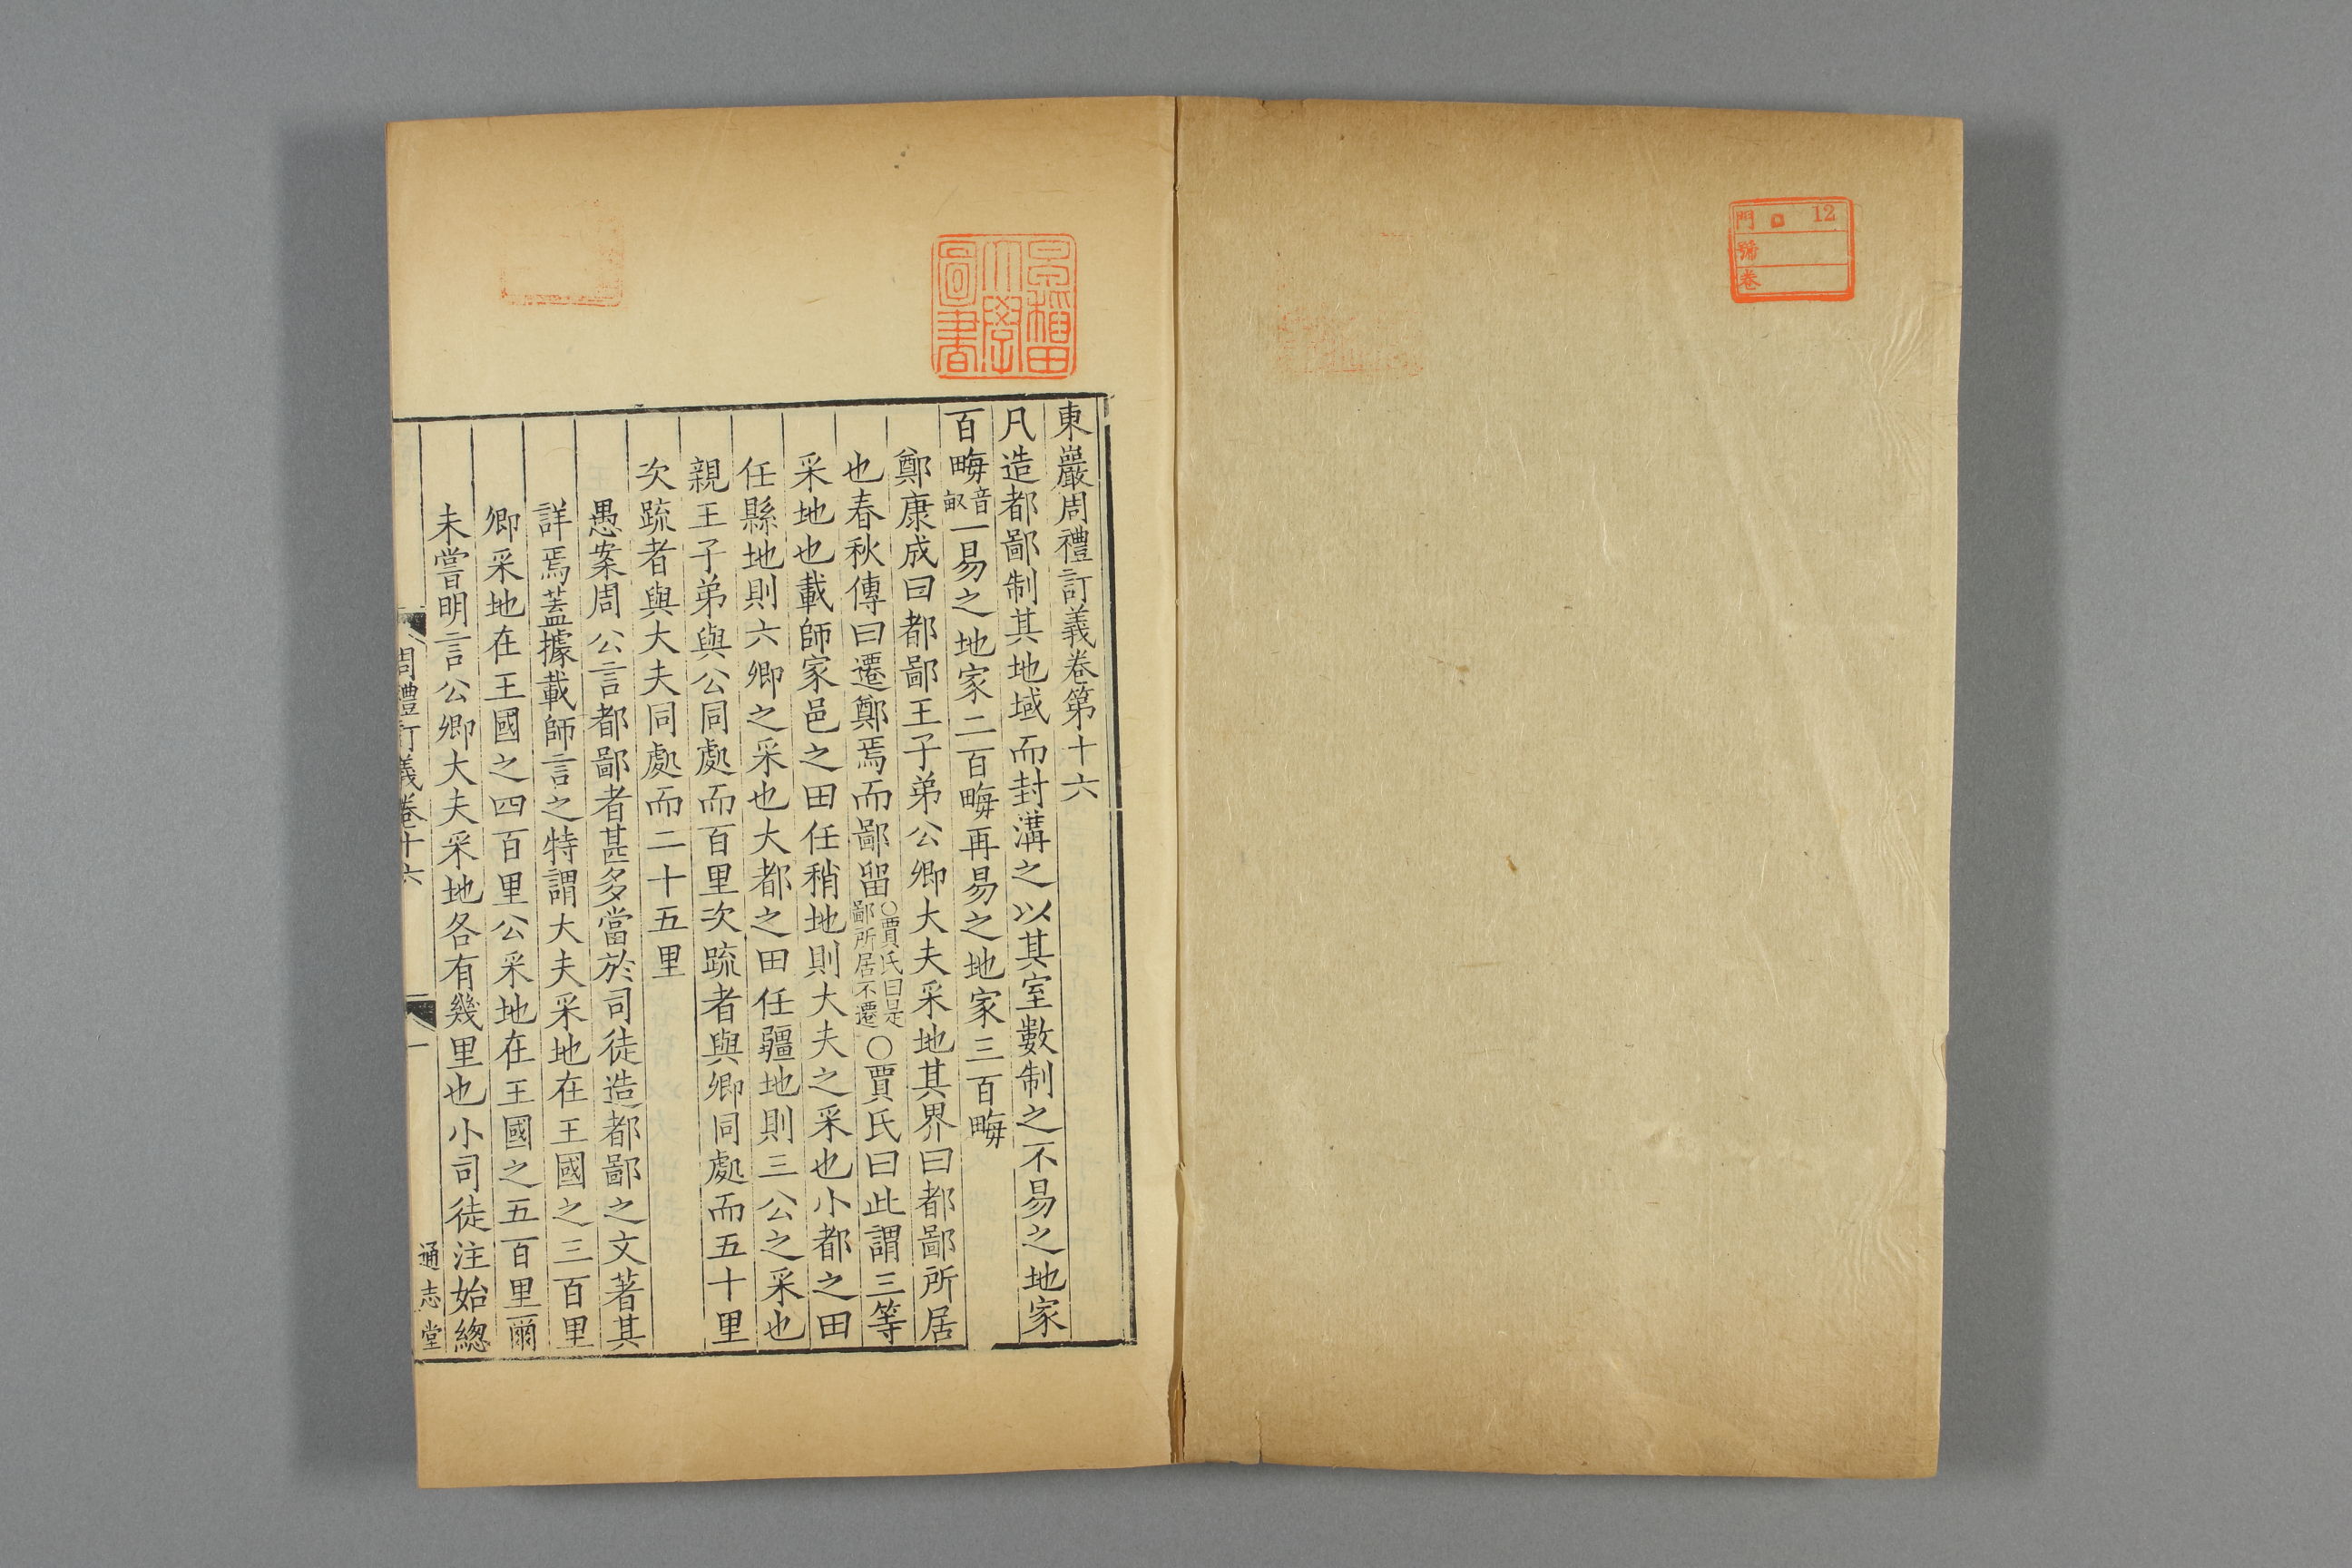 門 12
號
卷
早稲田
大學
圖書
東巖周禮訂義卷第十六
凡造都鄙制其地域而封溝之以其室數制之不易之地家
百畮音畝一易之地家二百畮再易之地家三百畮
鄭康成曰都鄙王子弟公卿大夫采地其界曰都鄙所居
也春秋傳曰遷鄭焉而鄙留○賈氏曰是鄙所居不遷○賈氏曰此謂三等
采地也載師家邑之田任稍地則大夫之采也小都之田
任縣地則六卿之采也大都之田任疆地則三公之采也
親王子弟與公同處而百里次疏者與卿同處而五十里
次疏者與大夫同處而二十五里
愚案周公言都鄙者甚多當於司徒造都鄙之文著其
詳焉蓋據載師言之特謂大夫采地在王國之三百里
卿采地在王國之四百里公采地在王國之五百里爾
未嘗明言公卿大夫采地各有幾里也小司徒注始總
周禮訂義卷十六 一 通志堂